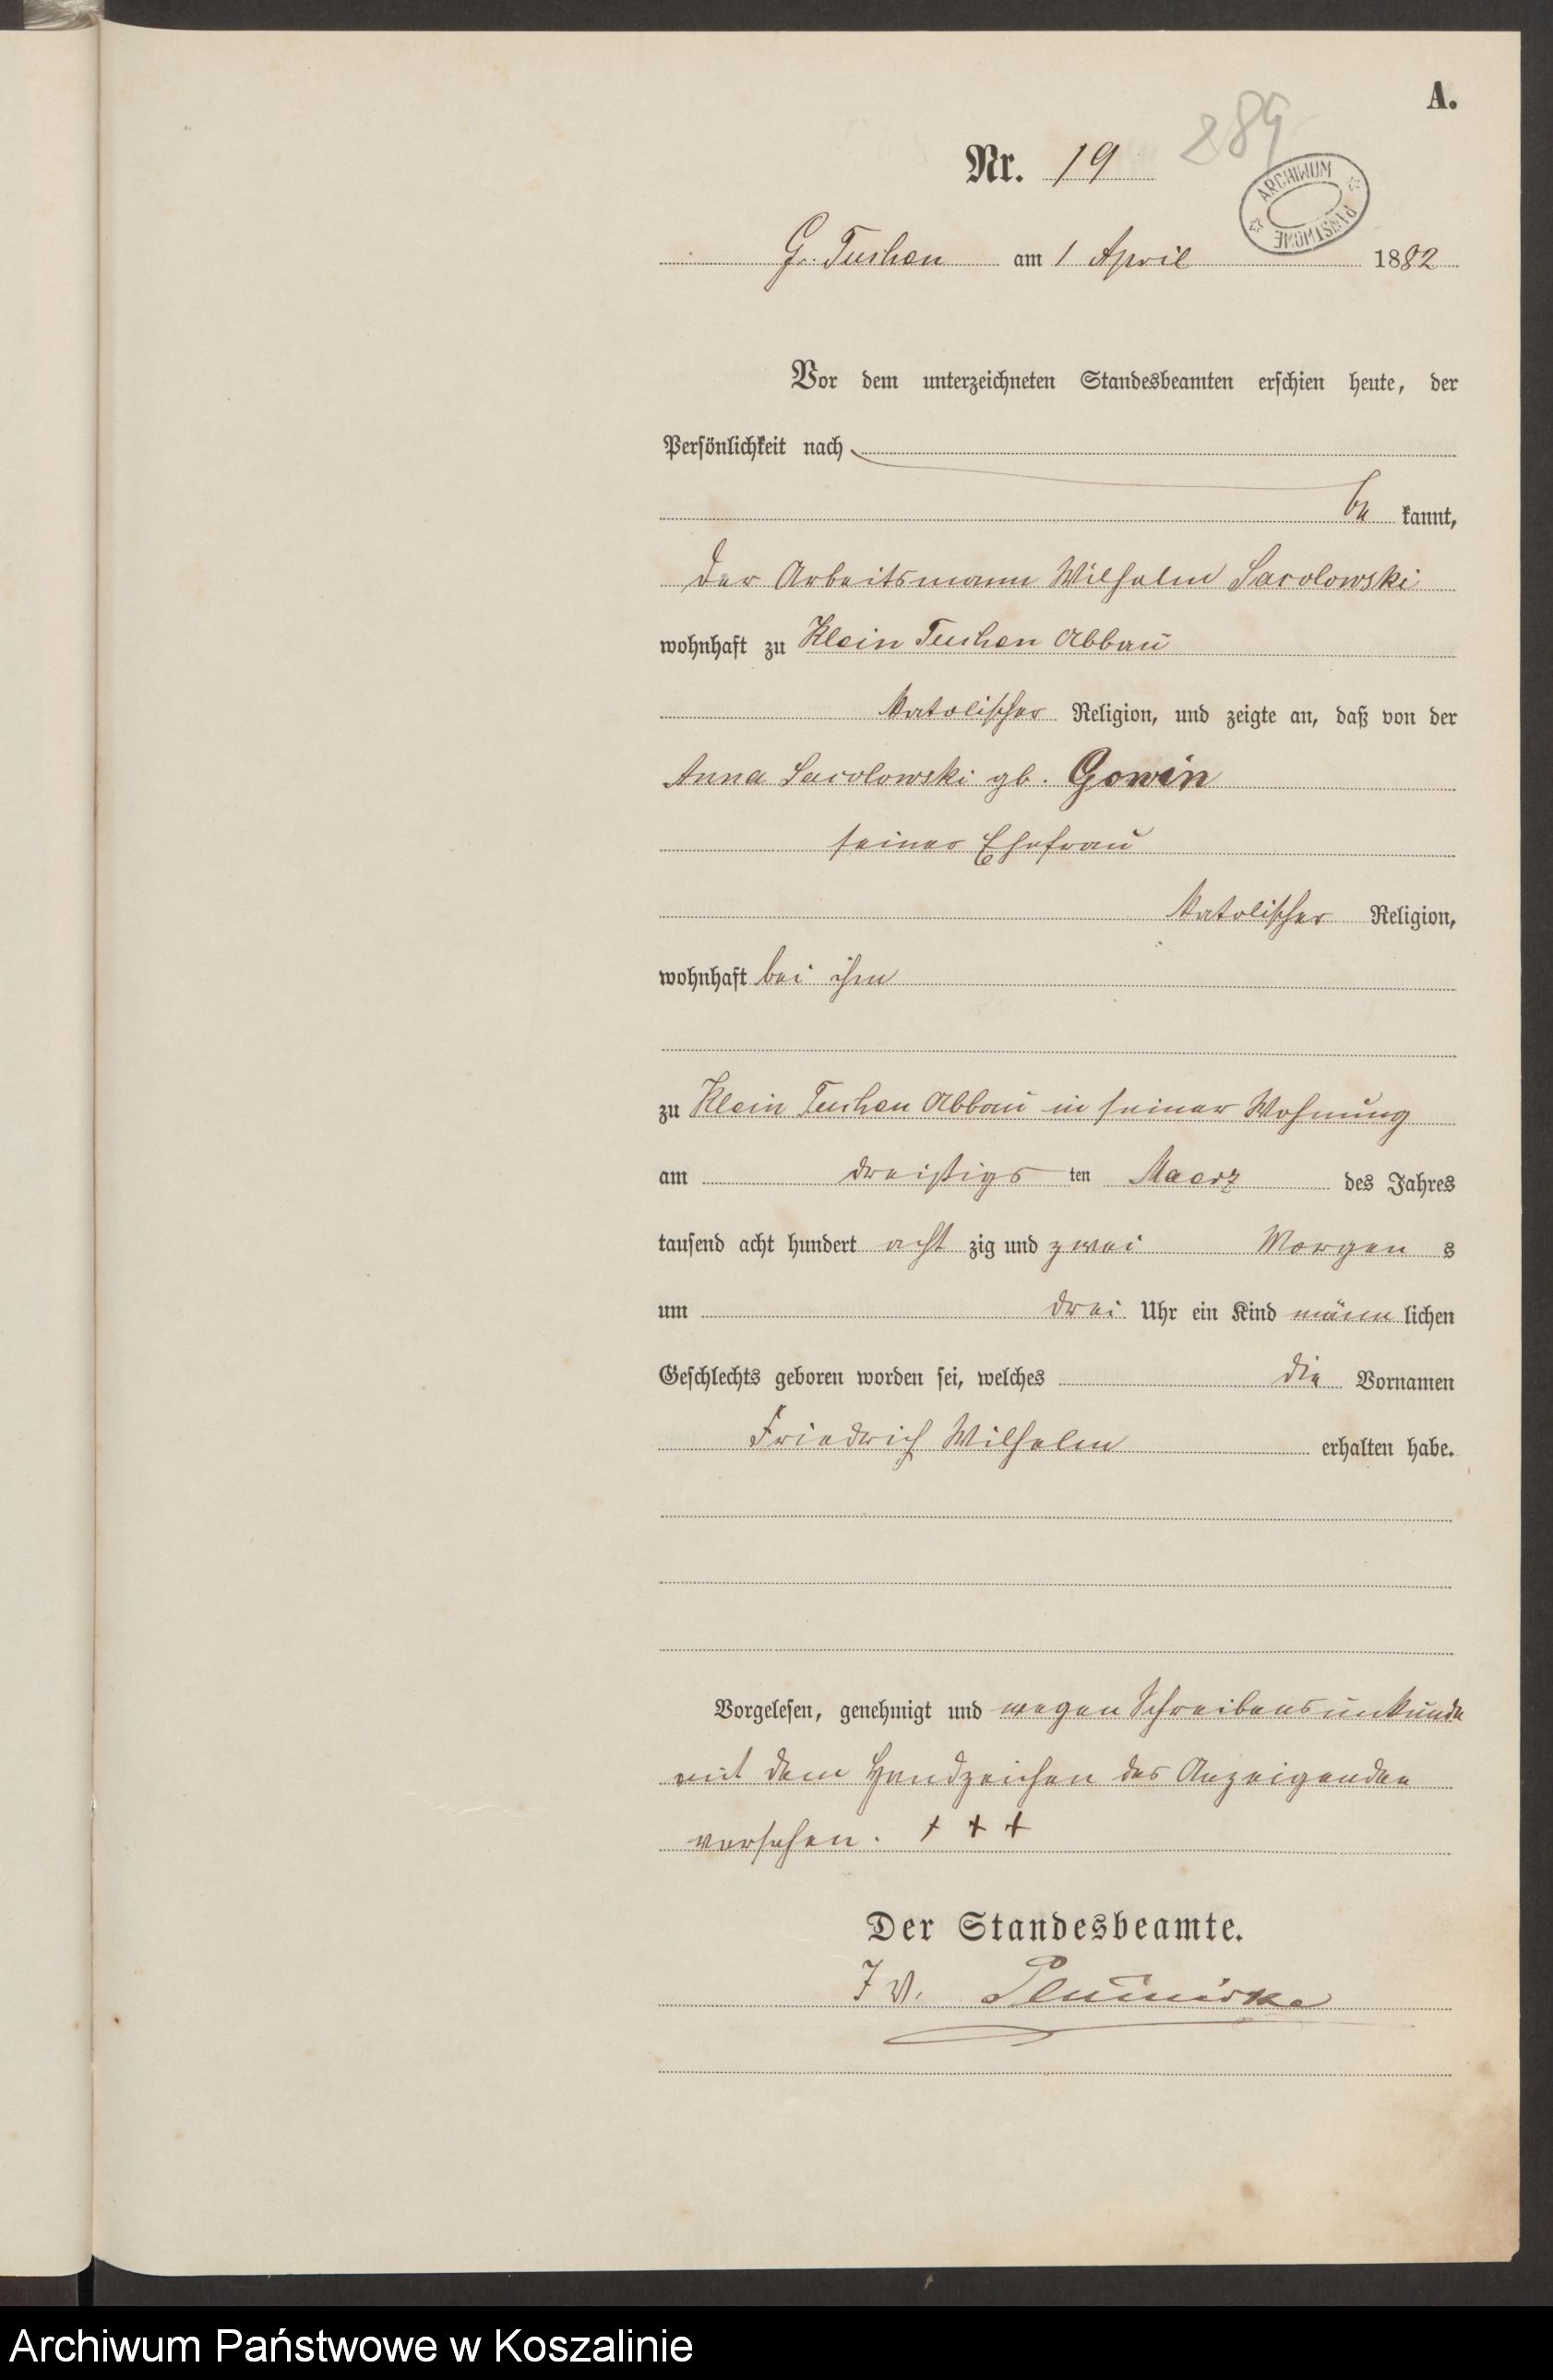 A.
289
Nr. 19
ARCHIWUM PAŃSTWOWE
G. Tuchen am 1 April 1882
Vor dem unterzeichneten Standesbeamten erschien heute, der
Persönlichkeit nach
be kannt,
der Arbeitsmann Wilhelm Sacolowski
wohnhaft zu Klein Tuchen Abbau
katolischer Religion, und zeigte an, daß von der
Anna Sacolowski gb. Gowin
seiner Ehefrau
katolischer Religion,
wohnhaft bei ihm
zu Klein Tuchen Abbau in seiner Wohnung
am dreißigs ten Maerz des Jahres
tausend acht hundert acht zig und zwei Morgen s
um drei Uhr ein Kind männ lichen
Geschlechts geboren worden sei, welches die Vornamen
Friedrich Wilhelm erhalten habe.
Vorgelesen, genehmigt und wegen Schreibensunkunde
mit dem Handzeichen des Anzeigenden
versehen. + + +
Der Standesbeamte.
I V.
Archiwum Państwowe w Koszalinie